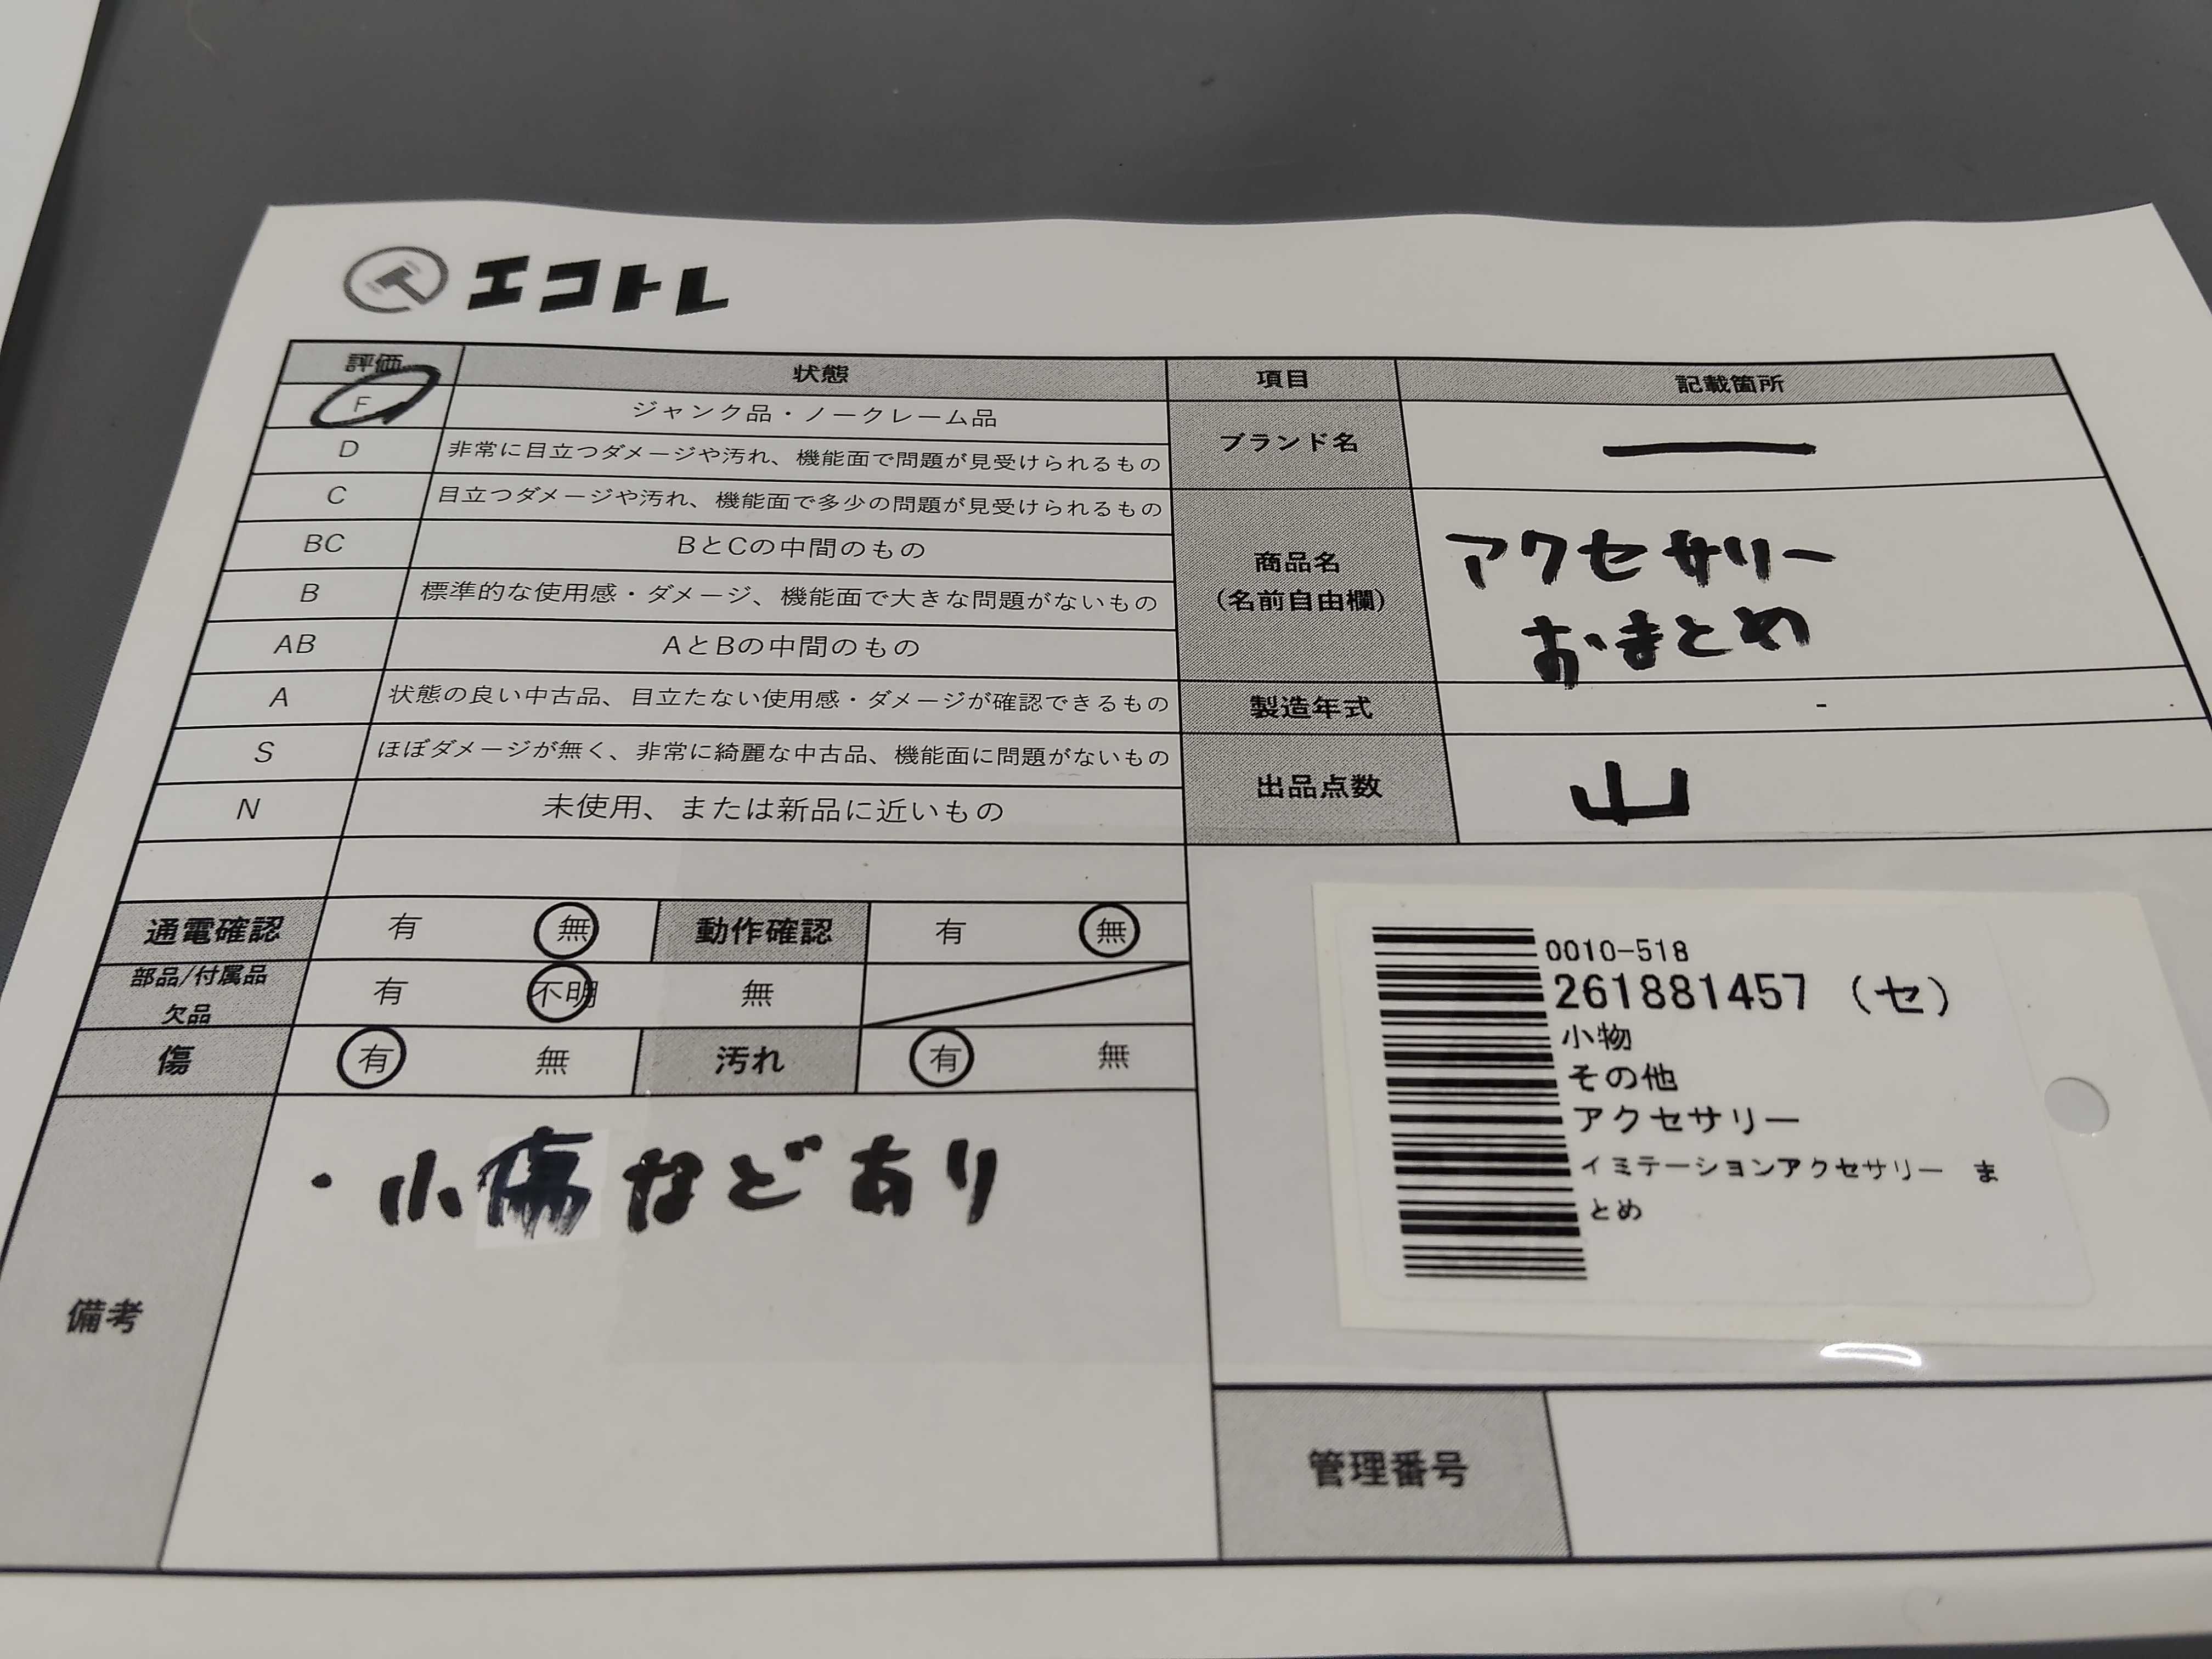 エコトレ
評価 状態 項目 記載箇所
F ジャンク品・ノークレーム品
D 非常に目立つダメージや汚れ、機能面で問題が見受けられるもの
C 目立つダメージや汚れ、機能面で多少の問題が見受けられるもの
BC BとCの中間のもの
B 標準的な使用感・ダメージ、機能面で大きな問題がないもの
AB AとBの中間のもの
A 状態の良い中古品、目立たない使用感・ダメージが確認できるもの
S ほぼダメージが無く、非常に綺麗な中古品、機能面に問題がないもの
N 未使用、または新品に近いもの
ブランド名 ー
商品名 アクセサリー
(名前自由欄) おまとめ
製造年式 -
出品点数 山
通電確認 有 無 動作確認 有 無
部品/付属品
欠品 有 不明 無
傷 有 無 汚れ 有 無
備考
・小傷などあり
0010-518
261881457 (セ)
小物
その他
アクセサリー
イミテーションアクセサリー ま
とめ
管理番号